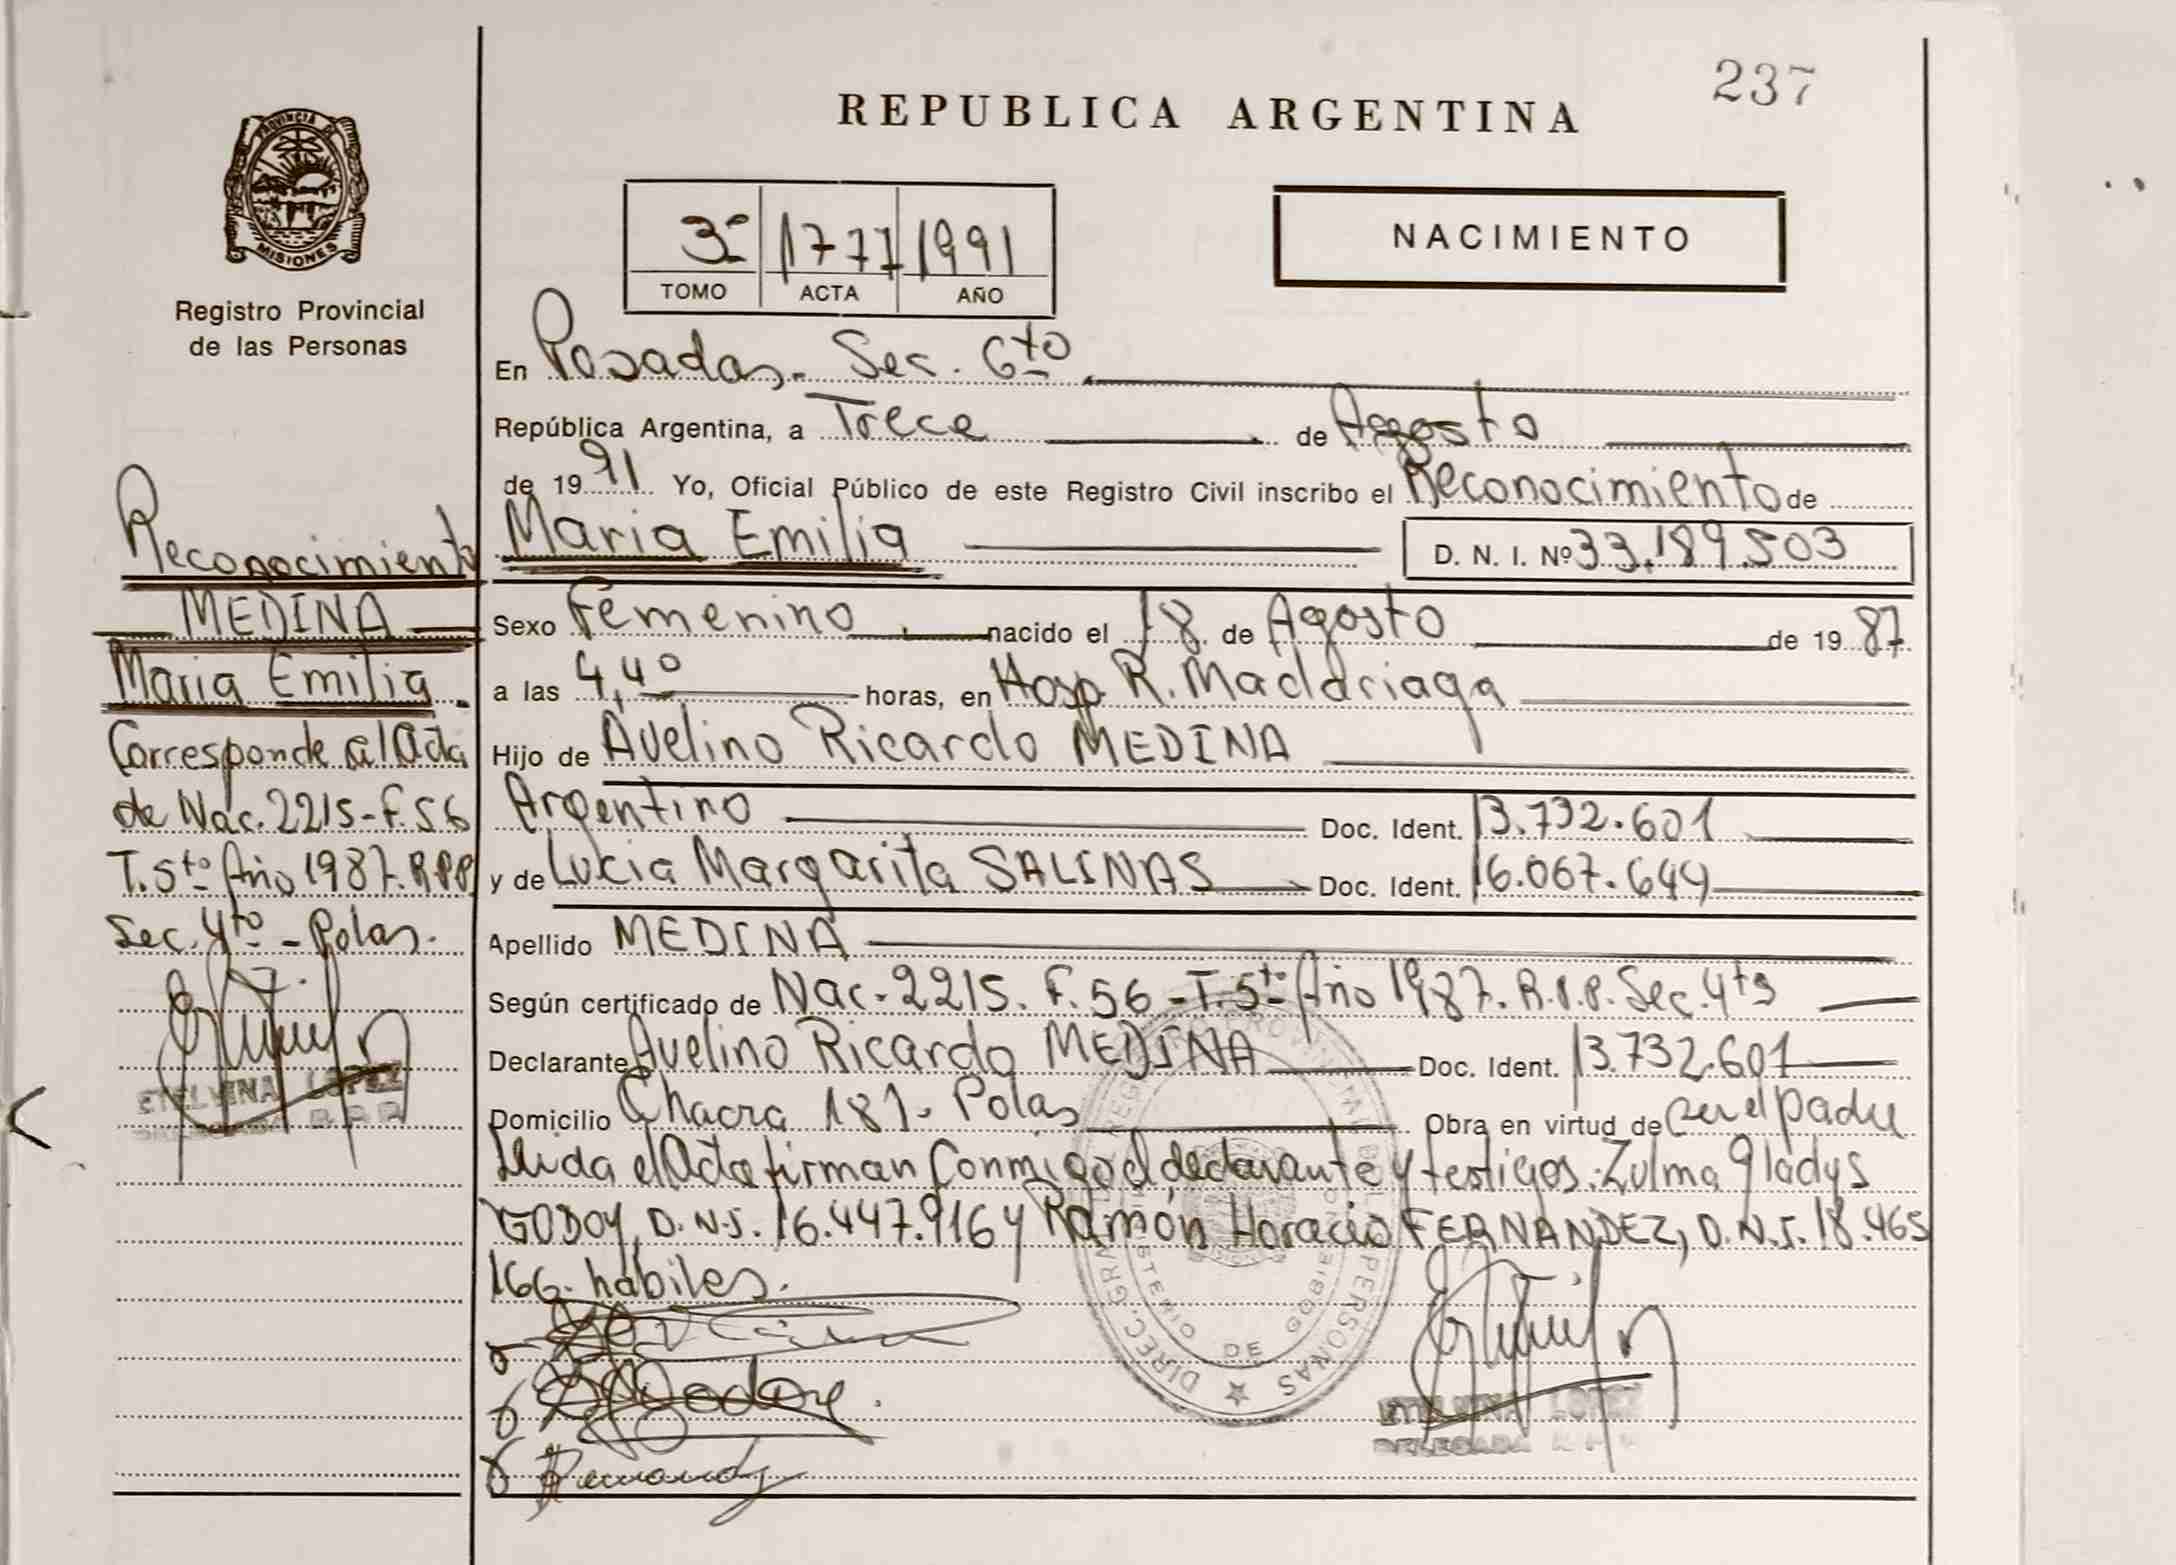 237
REPUBLICA ARGENTINA
PROVINCIA DE
MISIONES
Registro Provincial
de las Personas
3º 1777 1991
TOMO ACTA AÑO
NACIMIENTO
En Posadas. Sec. 6to
República Argentina, a Trece de Agosto
de 1991 Yo, Oficial Público de este Registro Civil inscribo el Reconocimiento de
Maria Emilia D. N. I. Nº 33.189.503
Sexo Femenino nacido el 18 de Agosto de 1987
a las 4,40 horas, en Hosp R. Maddriaga
Hijo de Avelino Ricardo MEDINA
Argentino Doc. Ident. 13.732.601
y de Lucia Margarita SALINAS Doc. Ident. 16.067.644
Apellido MEDINA
Según certificado de Nac. 2215. F. 56 - T. 5to Año 1987. R.P.P. Sec. 4to
Declarante Avelino Ricardo MEDINA Doc. Ident. 13.732.601
Domicilio Chacra 181. Polas Obra en virtud de ser el padre
Leida el Acta firman conmigo el declarante y testigos. Zulma Gladys
GODOY, D.N.I. 16.447.916 y Ramón Horacio FERNANDEZ, D.N.I. 18.465
166. habiles.
Reconocimiento
MEDINA
Maria Emilia.
Corresponde al Acta
de Nac. 2215 - F. 56
T. 5to Año 1987. RPP
Sec. 4to - Polas.
ETELVINA LOPEZ
ETELVINA LOPEZ
DELEGADA